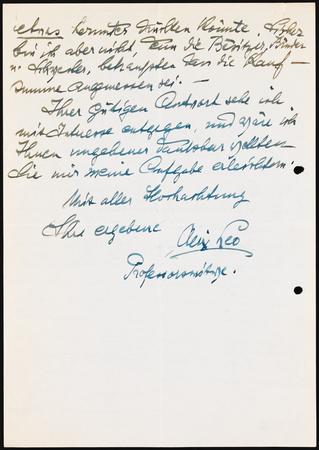 etwas herunter drücken könnte. Sicher
bin ich aber nicht, denn die Besitzer, Binder
u. Schwecke, behaupten dass die Kauf-
summe angemessen sei. -
Ihrer gütigen Antwort sehe ich
mit Interesse entgegen, und wäre ich
Ihnen ungeheuer dankbar wollten
Sie mir meine Aufgabe erleichtern.
Mit aller Hochachtung
Ihre ergebene
Leo
Professorswitwe.